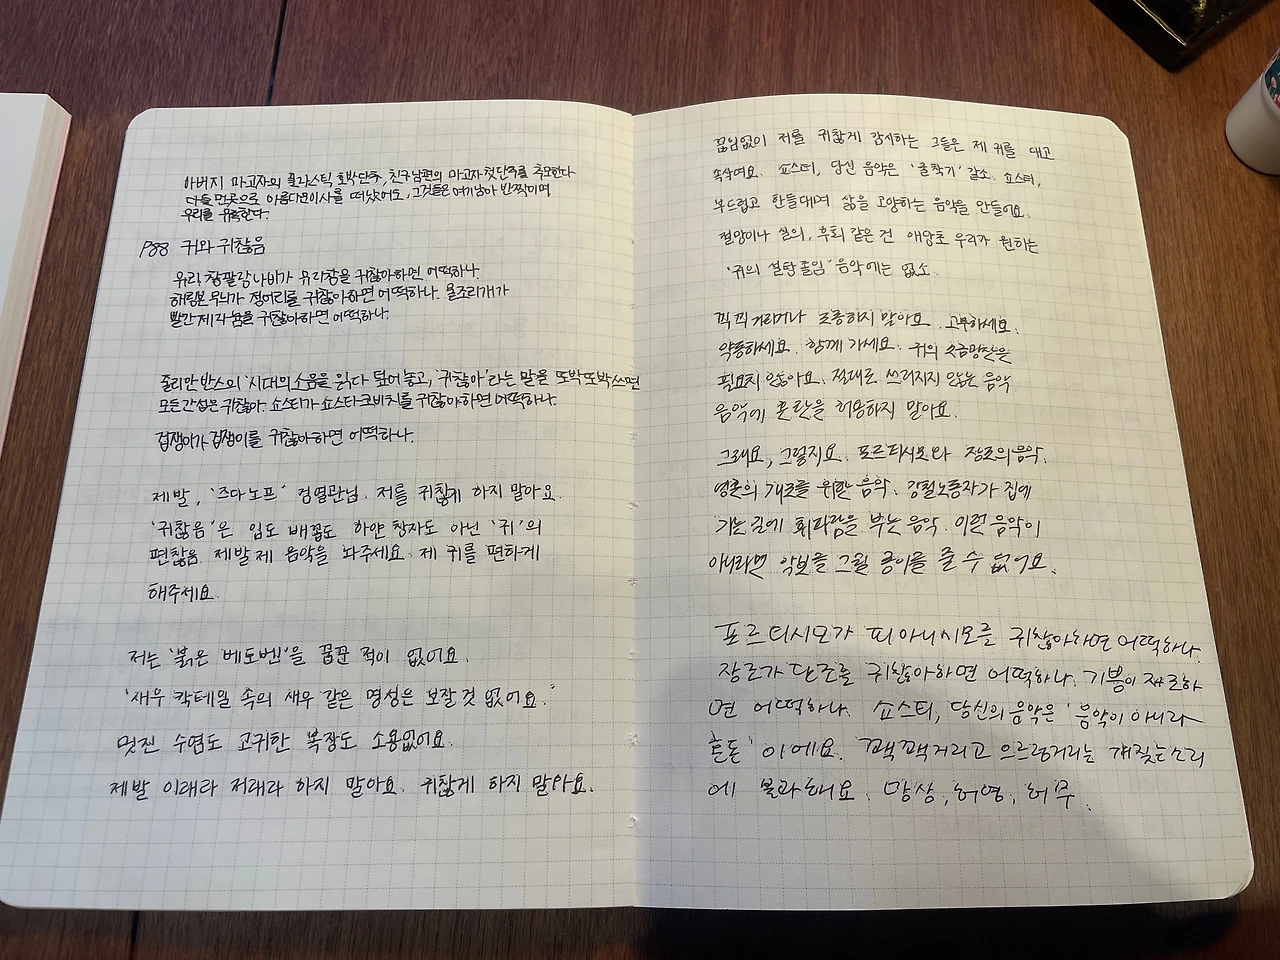 아버지 마고자의 플라스틱 호박단추, 친구 남편의 마고자 첫단추를 추모한다
다들 먼곳으로 아름다운 이사를 떠났어도, 그것들은 여기 남아 반짝이며
우리를 유혹한다.
P88 귀와 귀찮음
유리창팔랑나비가 유리창을 귀찮아하면 어떡하나.
해림본 무늬가 정어리를 귀찮아하면 어떡하나. 물조리개가
빨간 제라늄을 귀찮아하면 어떡하나.
줄리안 반스의 '시대의 소음을 읽다 덮어놓고, '귀찮아'라는 말을 또박또박 쓰면
모든 간섭은 귀찮아. 쇼스티가 쇼스타코비치를 귀찮아하면 어떡하나.
겁쟁이가 겁쟁이를 귀찮아하면 어떡하나.
제발, '즈다노프' 검열관님. 저를 귀찮게 하지 말아요.
'귀찮음'은 입도 배꼽도 하얀 창자도 아닌 '귀'의
편찮음. 제발 제 음악을 놔주세요. 제 귀를 편하게
해주세요.
저는 '붉은 베토벤'을 꿈꾼 적이 없어요.
'새우 칵테일 속의 새우 같은 명성은 보잘 것 없어요.'
멋진 수염도 고귀한 복장도 소용없어요.
제발 이래라 저래라 하지 말아요. 귀찮게 하지 말아요.
끊임없이 저를 귀찮게 감시하는 그들은 제 귀를 대고
속삭여요. 쇼스티, 당신 음악은 '굴착기' 같소. 쇼스티,
부드럽고 한들대며 삶을 고양하는 음악을 만들어요.
절망이나 실의, 후회 같은 건 애당초 우리가 원하는
'귀의 설탕 졸임' 음악에는 없소.
끽끽거리거나 조롱하지 말아요. 고무하세요.
약동하세요. 함께 가세요. 귀의 소금광산은
필요치 않아요. 절대로 쓰러지지 않는 음악
음악에 혼란을 허용하지 말아요.
그래요, 그렇지요. 포르티시모와 장조의 음악.
영혼의 개조를 위한 음악. 강철노동자가 집에
가는 길에 휘파람을 부는 음악. 이런 음악이
아니라면 악보를 그릴 종이를 줄 수 없어요.
포르티시모가 피아니시모를 귀찮아하면 어떡하나.
장조가 단조를 귀찮아하면 어떡하나. 기쁨이 재료하
면 어떡하나. 쇼스티, 당신의 음악은 '음악이 아니라
혼돈'이에요. 꽥꽥거리고 으르렁거리는 개 짖는 소리
에 불과해요. 망상, 허영, 허무.